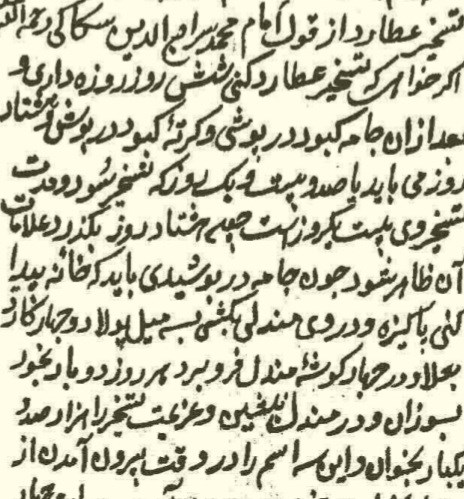 تسخیر عطارد از قول امام محمد سراج الدین سکاکی رحمة الله
اگر خواهی که تسخیر عطارد کنی شش روز روزه داری و
بعد ازان جامه کبود در پوشی و کرتهٔ کبود در پوشی و هشتاد
روز می باید یا صد و بیست و یک روز که تسخیر شود و مدت
تسخیر وی بیست یکروز است چهل هشتاد روز بگذرد علامات
آن ظاهر شود چون جامه در پوشیدی باید که خانه پیدا
کنی پاکیزه و در وی مندلی بکشی بسه میل پولاد و چهار کارد
بعلا و در چهار کوشهٔ مندل فرو برد هر روز دو بار بخور
بسوزان و در مندل بنشین و عزیمت تسخیر را هزار صد و
یکبار بخوان و این سه اسم را در وقت بیرون آمدن از